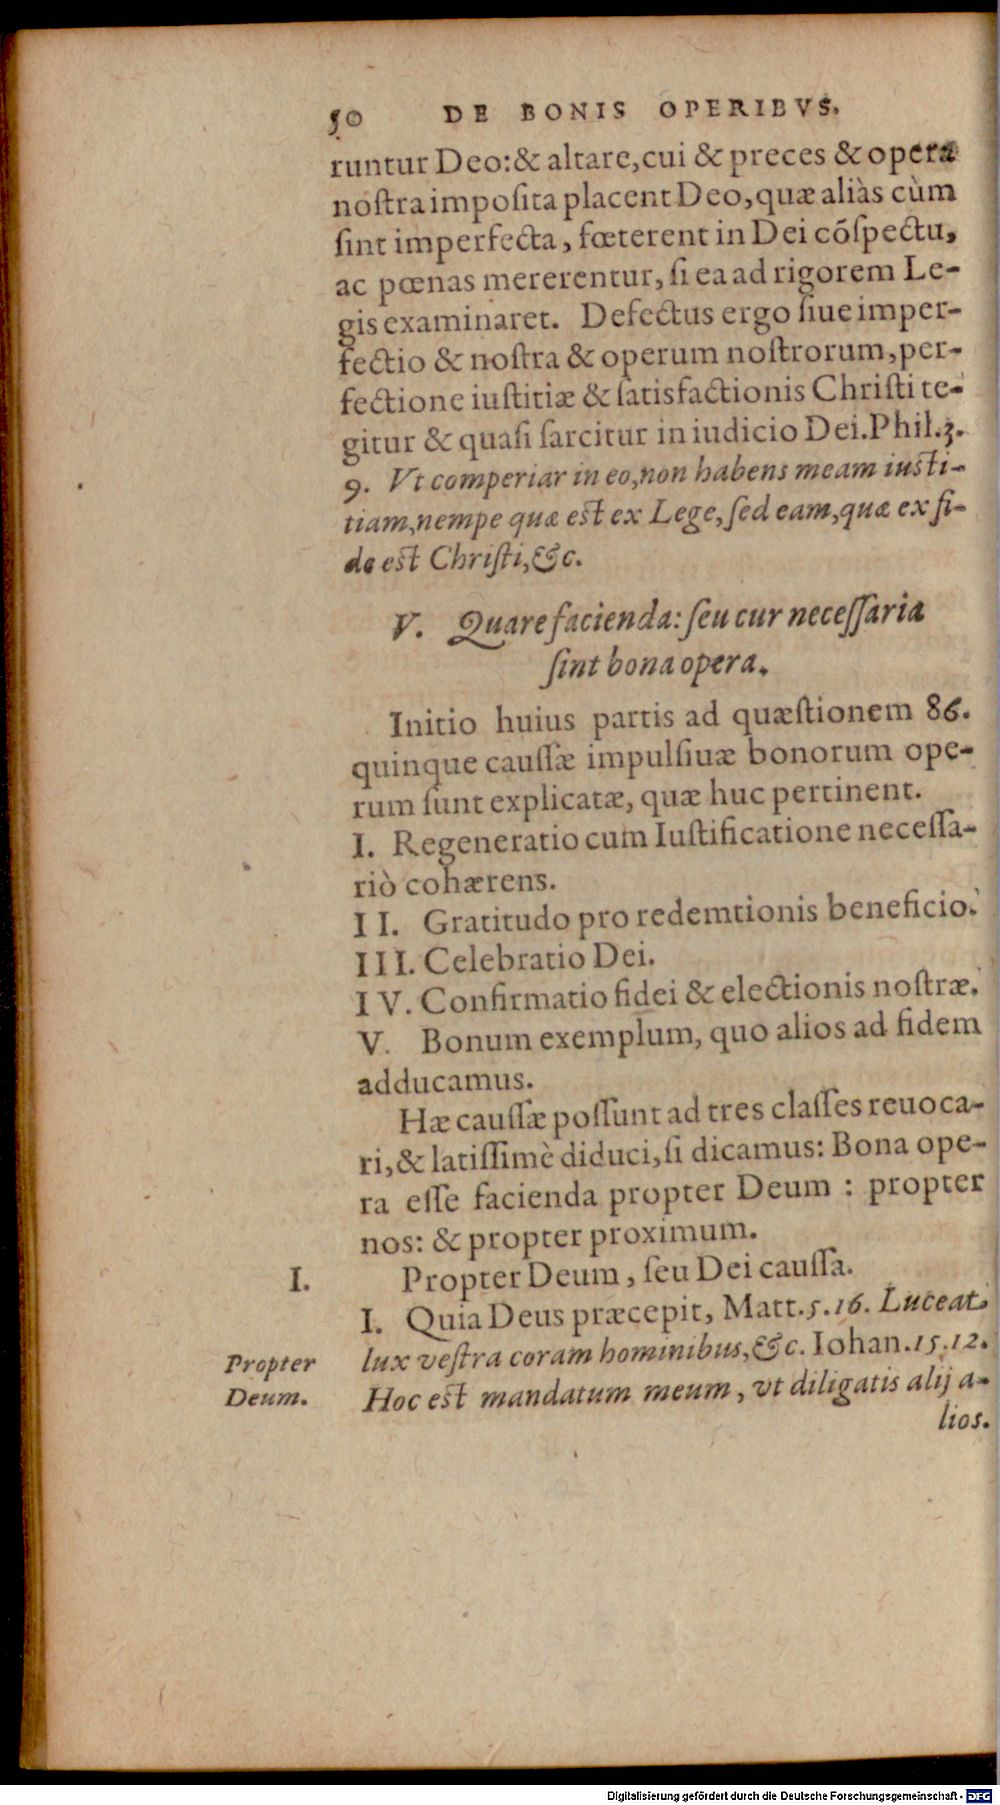 50 DE BONIS OPERIBVS.
runtur Deo:& altare,cui & preces & opera
noſtra impoſita placent Deo,quæ aliàs cùm
ſint imperfecta, fœterent in Dei cõſpectu,
ac pœnas mererentur, ſi ea ad rigorem Le-
gis examinaret. Defectus ergo ſiue imper-
fectio & noſtra & operum noſtrorum,per-
fectione iuſtitiæ & ſatisfactionis Chriſti te-
gitur & quaſi ſarcitur in iudicio Dei.Phil.3.
9. Vt comperiar in eo,non habens meam iuſti-
tiam,nempe quæ eſt ex Lege, ſed eam,quæ ex fi-
de eſt Chriſti,&c.
V. Quare facienda: ſeu cur neceſſaria
ſint bona opera.
Initio huius partis ad quæſtionem 86.
quinque cauſſæ impulſiuæ bonorum ope-
rum ſunt explicatæ, quæ huc pertinent.
I. Regeneratio cum Iuſtificatione neceſſa-
riò cohærens.
II. Gratitudo pro redemtionis beneficio.
III. Celebratio Dei.
IV. Confirmatio fidei & electionis noſtræ.
V. Bonum exemplum, quo alios ad fidem
adducamus.
Hæ cauſſæ poſſunt ad tres claſſes reuoca-
ri,& latiſſimè diduci,ſi dicamus: Bona ope-
ra eſſe facienda propter Deum : propter
nos: & propter proximum.
I. Propter Deum, ſeu Dei cauſſa.
I. Quia Deus præcepit, Matt.5.16. Luceat
Propter lux veſtra coram hominibus,&c. Iohan.15.12.
Deum. Hoc eſt mandatum meum, vt diligatis alij a-
lios.
Digitalisierung gefördert durch die Deutsche Forschungsgemeinschaft - DFG